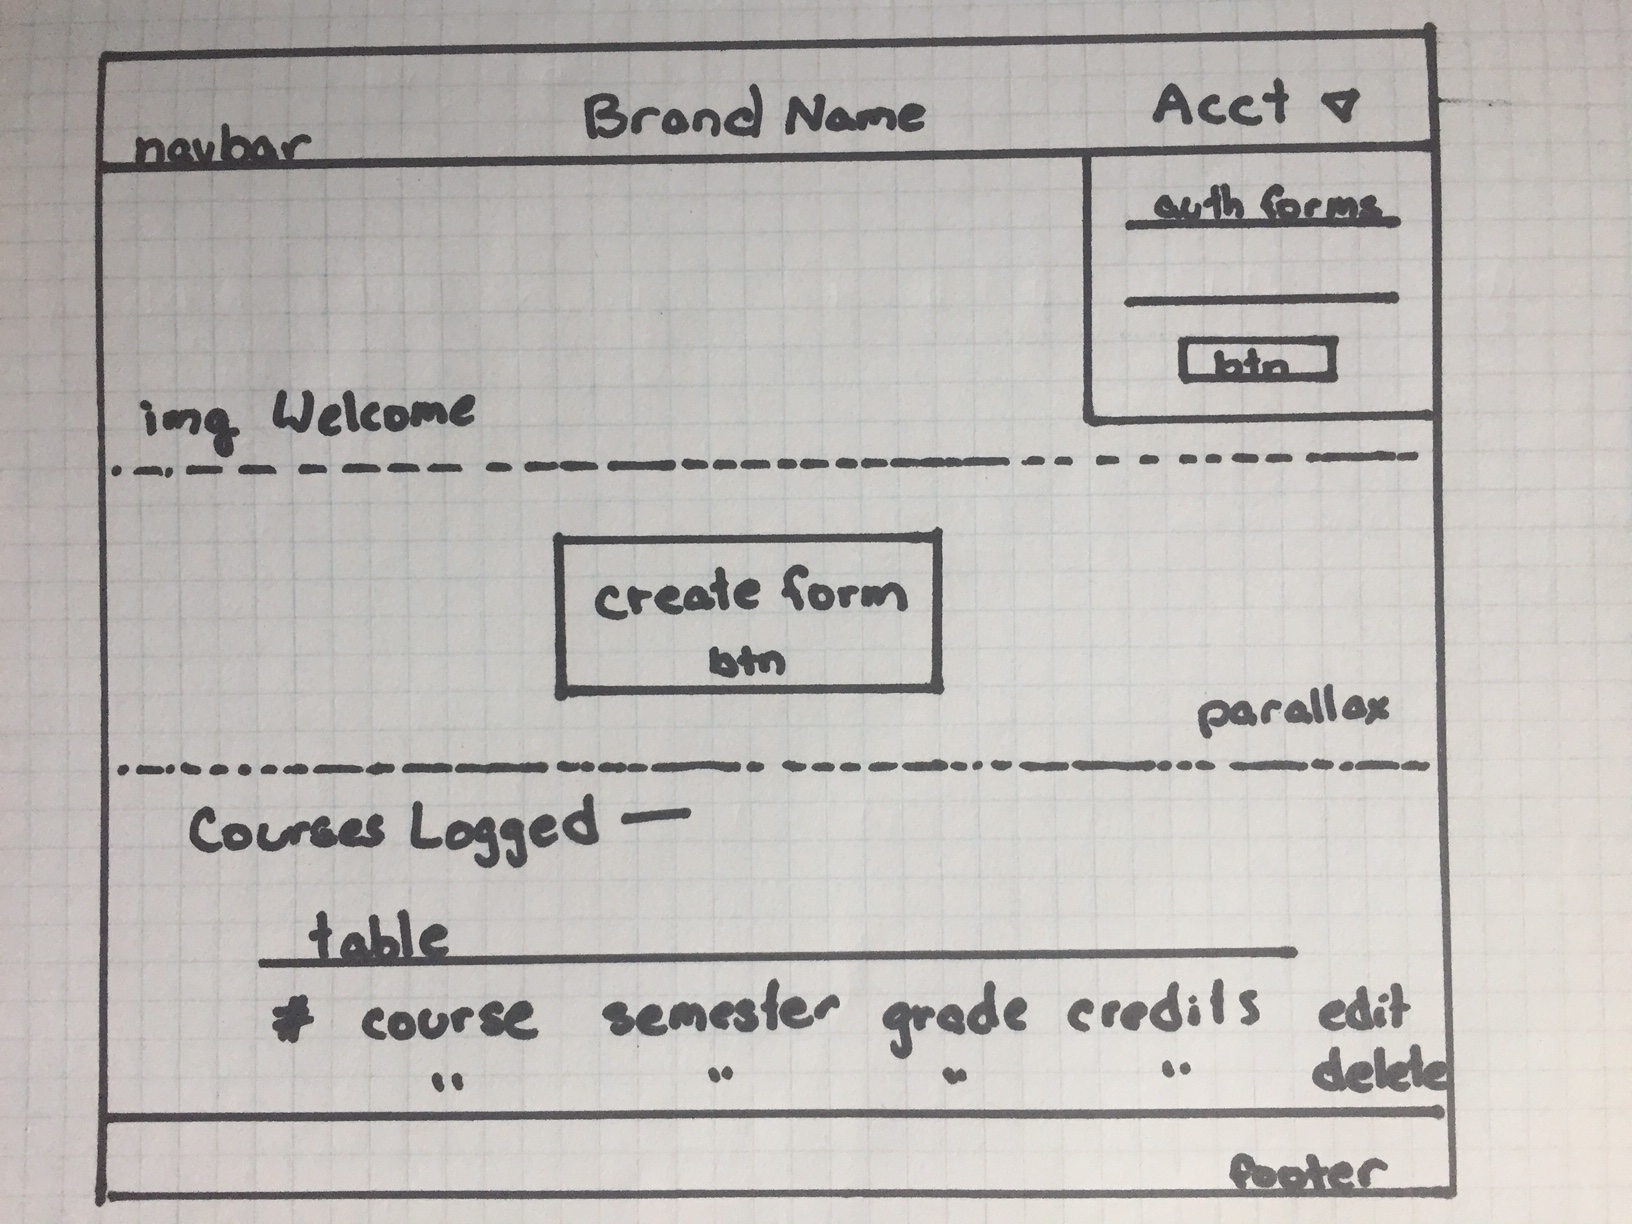 navbar Brand Name Acct
auth forms
btn
img Welcome
create form
btn
parallax
Courses Logged —
table
# course semester grade credits edit
" " " " delete
footer